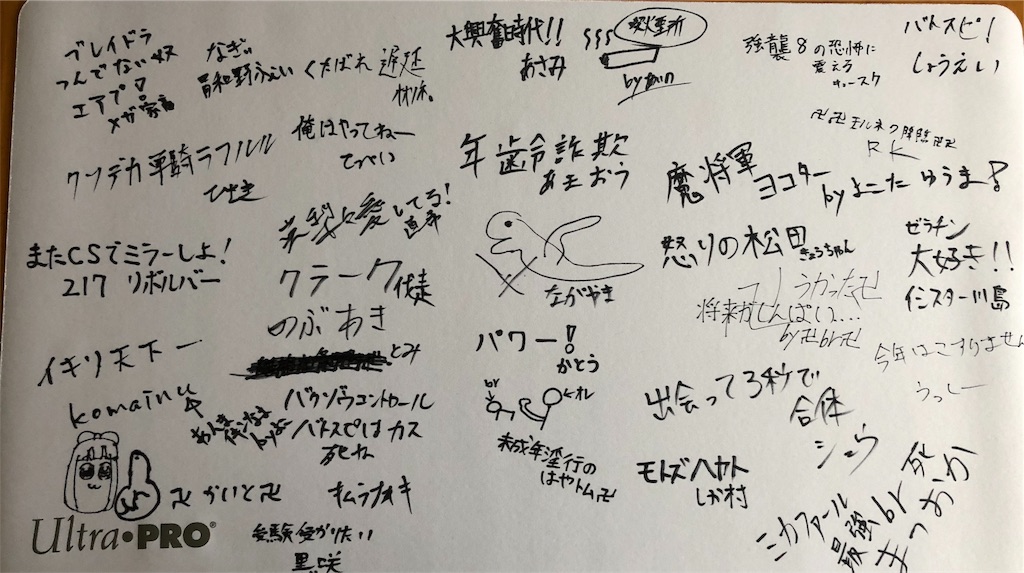 ブレイドラ
つんでない奴
エアプ!
メガ家畜
なぎ
くたばれ 遅延
大興奮時代!!
あさみ
喫煙所
by
強襲8の恐怖に
震えろ
バトスピ!
しょうえい
クソデカ軍騎ラフルル
ひでき
俺はやってねー
てっぺい
年齢詐欺
あまおう
卍卍 降臨卍卍
RK
魔将軍
ヨコター
byよこた ゆうま
またCSでミラーしよ!
217 リボルバー
愛してる!
クテーク信徒
のぶあき
とみ
ながやき
怒りの松田
きょうちゃん
うかった卍
将来がしんぱい…
by卍br卍
ゼラチン
大好き!!
イニスター川島
今年はこすりません
うっしー
イキリ天下一
komainu
バウソウコントロール
バトスピはカス
死ね
パワー!
かとう
br
←オレ
未成年淫行の
はやトム卍
出会って3秒で
合体
シュウ
モトズハヤト
しか村
卍かいと卍
キムラナオキ
受験受かりたい
黒咲
ミカファール
最強br
Ultra•PRO®